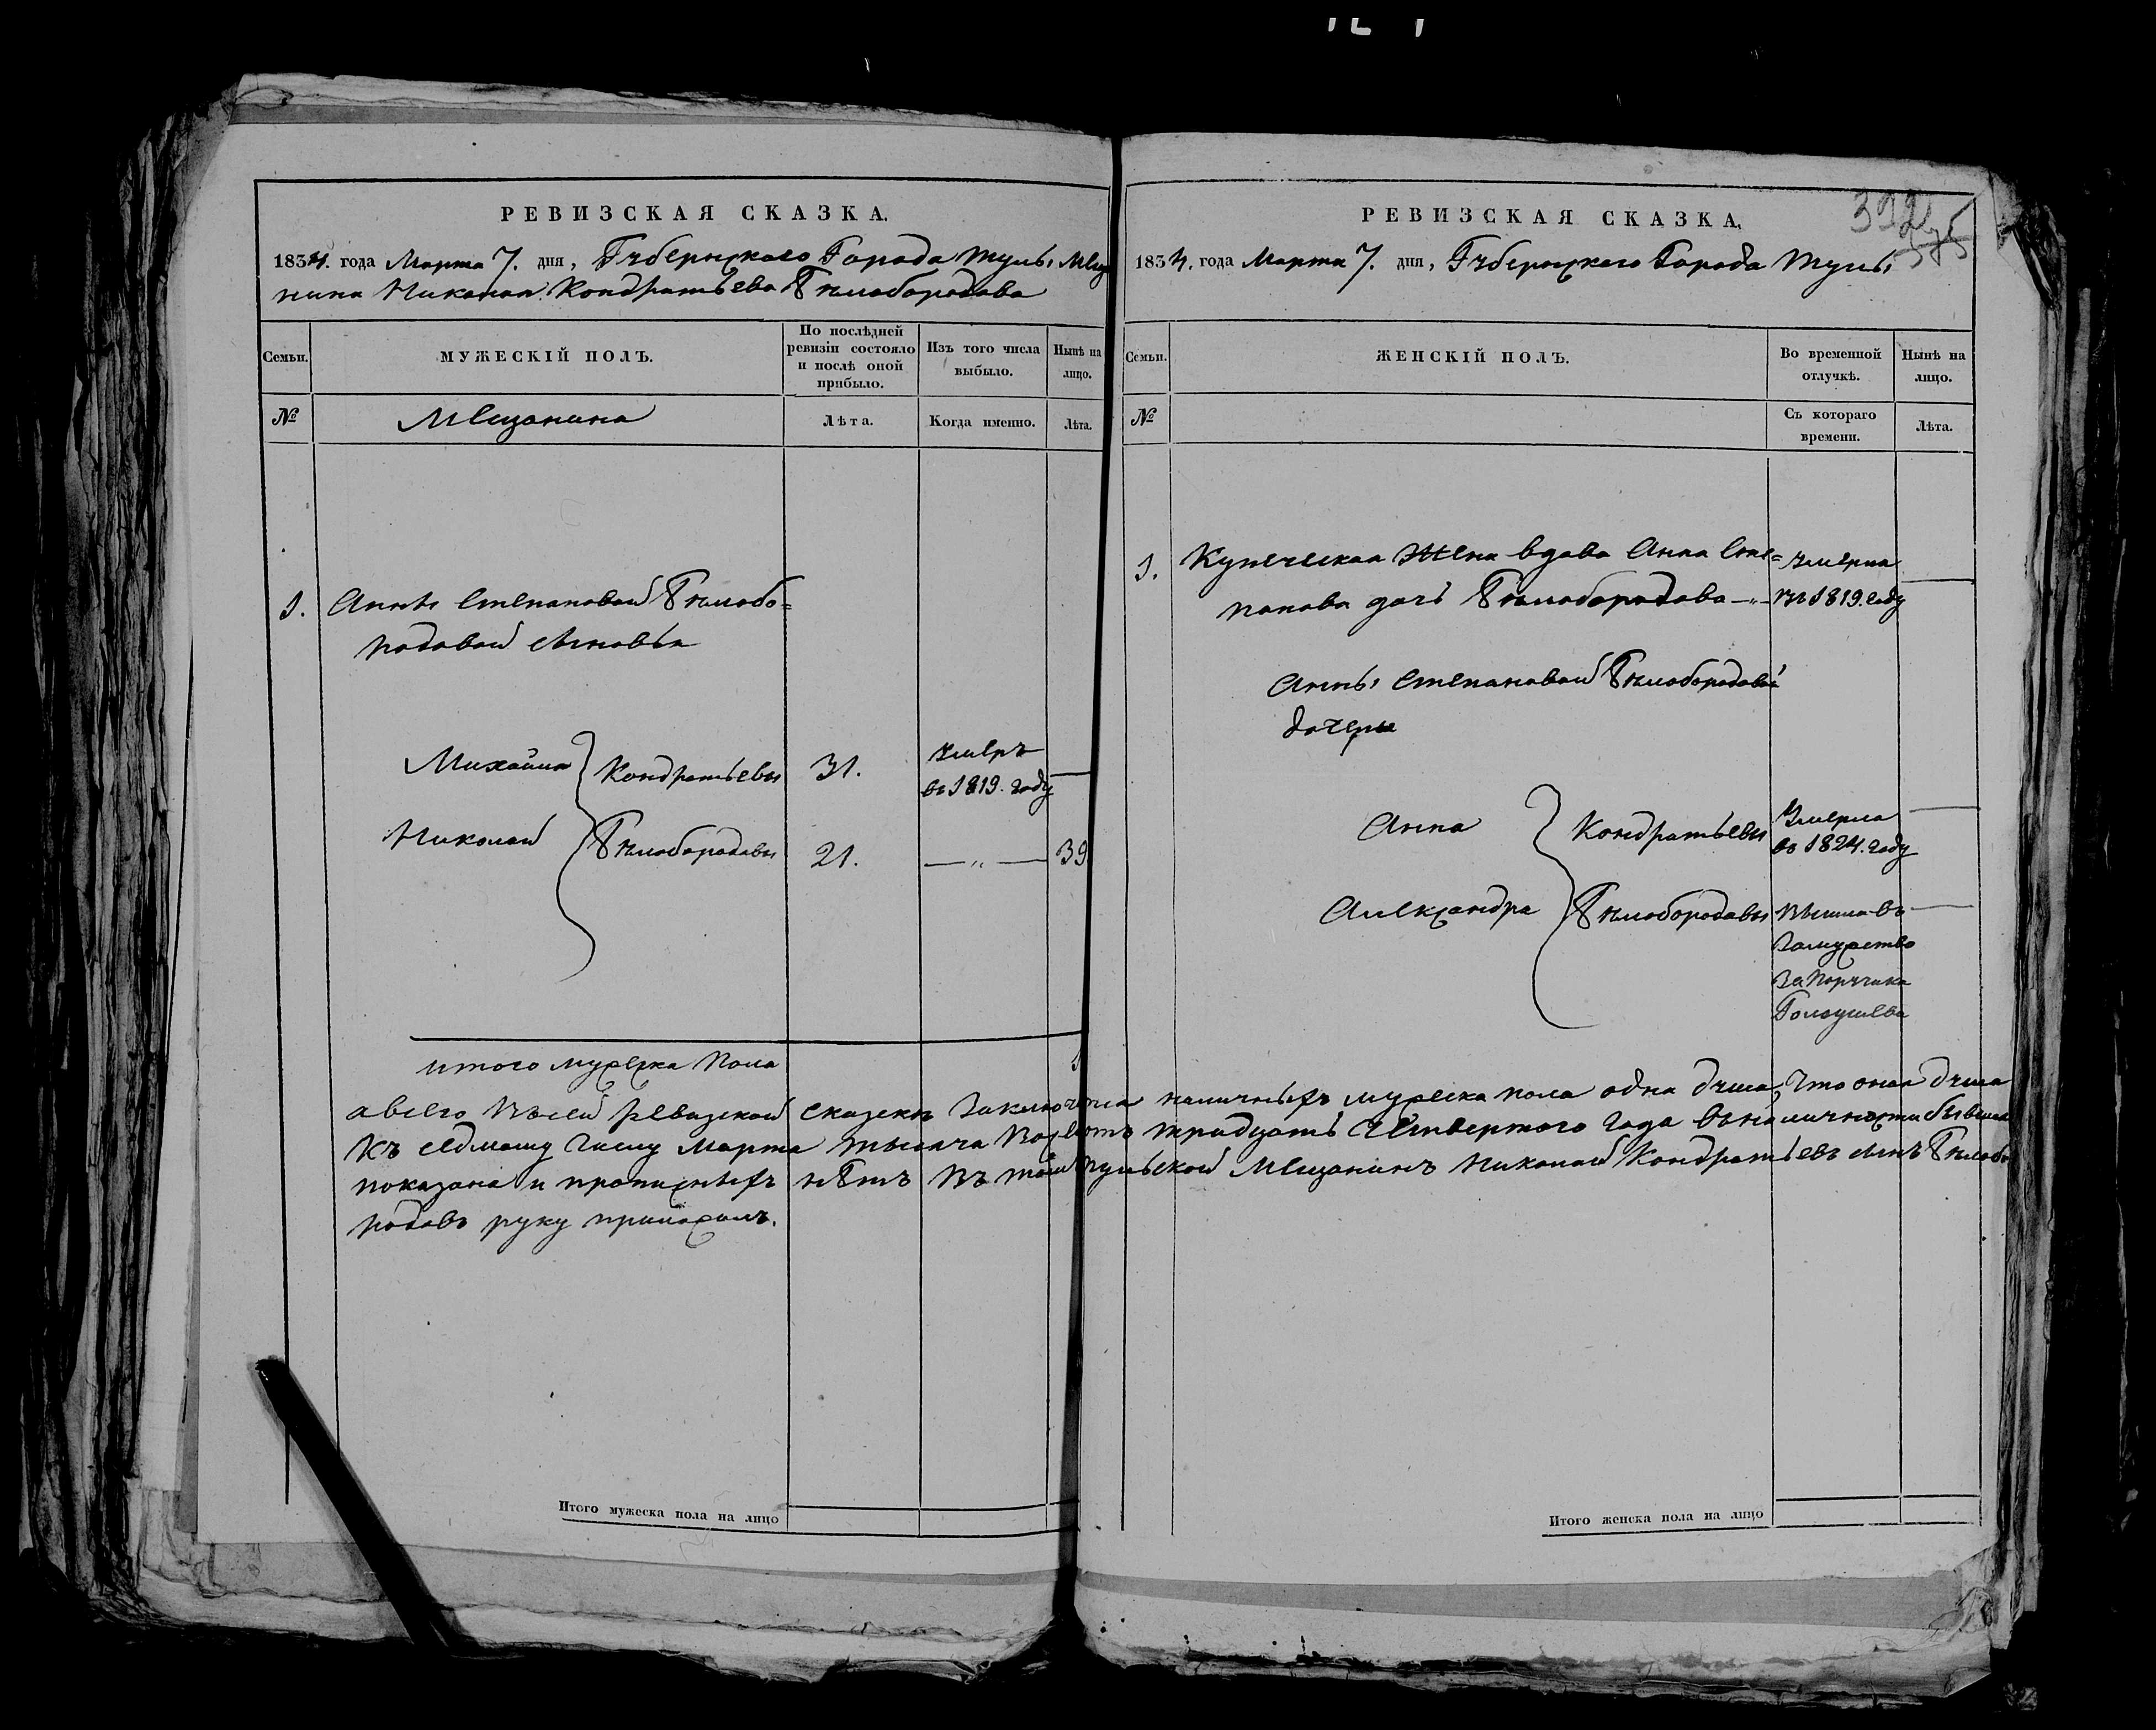 РЕВИЗСКАЯ СКАЗКА.
1834. года Марта 7. дня, Губернскаго Города Тулы Мещa
нина Николая Кондратьева Белобородова
Семьи.
МУЖЕСКІЙ ПОЛЪ.
По послѣдней ревизіи состояло и послѣ оной прибыло.
Изъ того числа выбыло.
Нынѣ на лицо.
№
Мещанина
Лѣта.
Когда именно.
Лѣта.
1. Анны Степановой Бѣлобо=
родовой сыновья
Михайла Кондратьевы 31. Умеръ
въ 1819. году
Николай Бѣлобородовы 21. —„— 39
итого мужеска пола 1
Итого мужеска пола на лицо
РЕВИЗСКАЯ СКАЗКА.
392
385
1834. года Марта 7. дня, Губернскаго Города Тулы
Семьи.
ЖЕНСКІЙ ПОЛЪ.
Во временной отлучкѣ.
Нынѣ на лицо.
№
Съ котораго времени.
Лѣта.
1. Купеческая Жена вдова Анна Сте= умерла
панова дочь Бѣлобородова —„— въ 1819. году
Анны Степановой Бѣлобородовой
дочери
Анна Кондратьевы Умерла
въ 1824. году
Александра Бѣлобородовы вышла въ
замужство
за Поручика
авсего въ сей ревизской сказке Заключено наличныхъ мужеска пола одна душа, что оная душа
къ седмому числу Марта тысяча восемьсотъ тридцать Четвертого года въ наличности бывшая
показана и прописныхъ нѣтъ въ томъ тульской Мещанинъ Николай Кондратьевъ сынъ Бѣлобо
родовъ руку приложилъ.
Итого женска пола на лицо